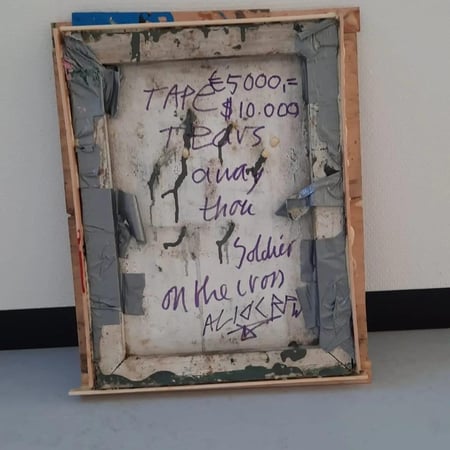 TAPE €5000,=
$10.000
Tears
away
thou
Soldier
on the cross